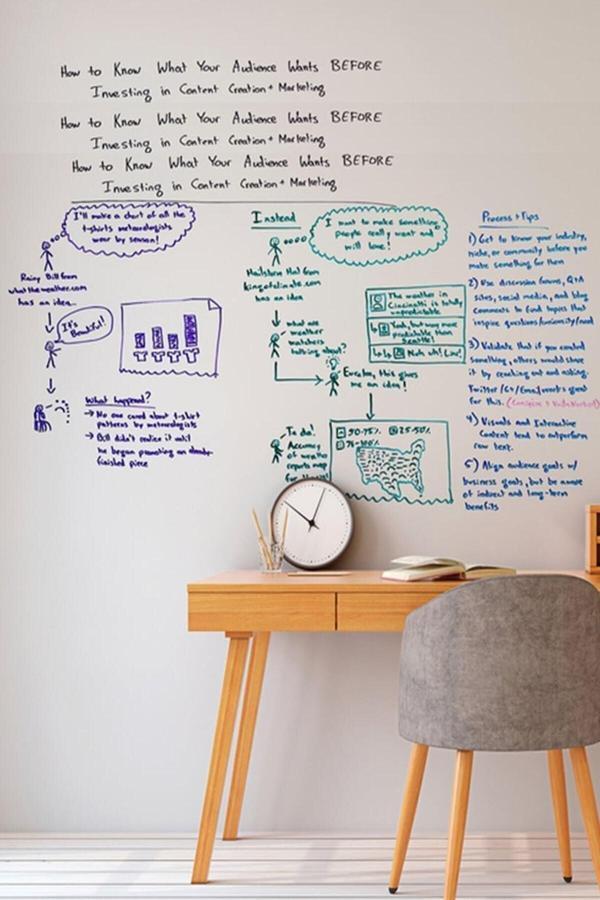 How to Know What Your Audience Wants BEFORE
Investing in Content Creation + Marketing
How to Know What Your Audience Wants BEFORE
Investing in Content Creation + Marketing
How to Know What Your Audience Wants BEFORE
Investing in Content Creation + Marketing
I'll make a chart of all the
t-shirts meteorologists
wear by season!
Rainy Bill from
whattheweather.com
has an idea...
It's
Beautiful!
What happened?
→ No one cared about t-shirt
patterns by meteorologists
→ Bill didn't realize it until
he began promoting an already-
finished piece
Instead
I want to make something
people really want and
will love!
Hailstorm Hal from
kingofclimate.com
has an idea
what are
weather
watchers
talking about?
The weather in
Cincinatti is totally
unpredictable
Yeah, but way more
predictable than
Seattle!
Nuh uh! Liar!
Eureka, this gives
me an idea!
Ta da!
Accuracy
of weather
reports map
50-75%
25-50%
76-100%
Process + Tips
1) Get to know your industry,
niche, or community before you
make something for them
2) Use discussion forums, Q+A
sites, social media, and blog
comments to find topics that
inspire questions/curiosity/need
3) Validate that if you created
something, others would share
it by reaching out and asking.
Twitter/G+/Email works great
for this.
4) Visuals and Interactive
Content tend to outperform
raw text.
5) Align audience goals w/
business goals, but be aware
of indirect and long-term
benefits